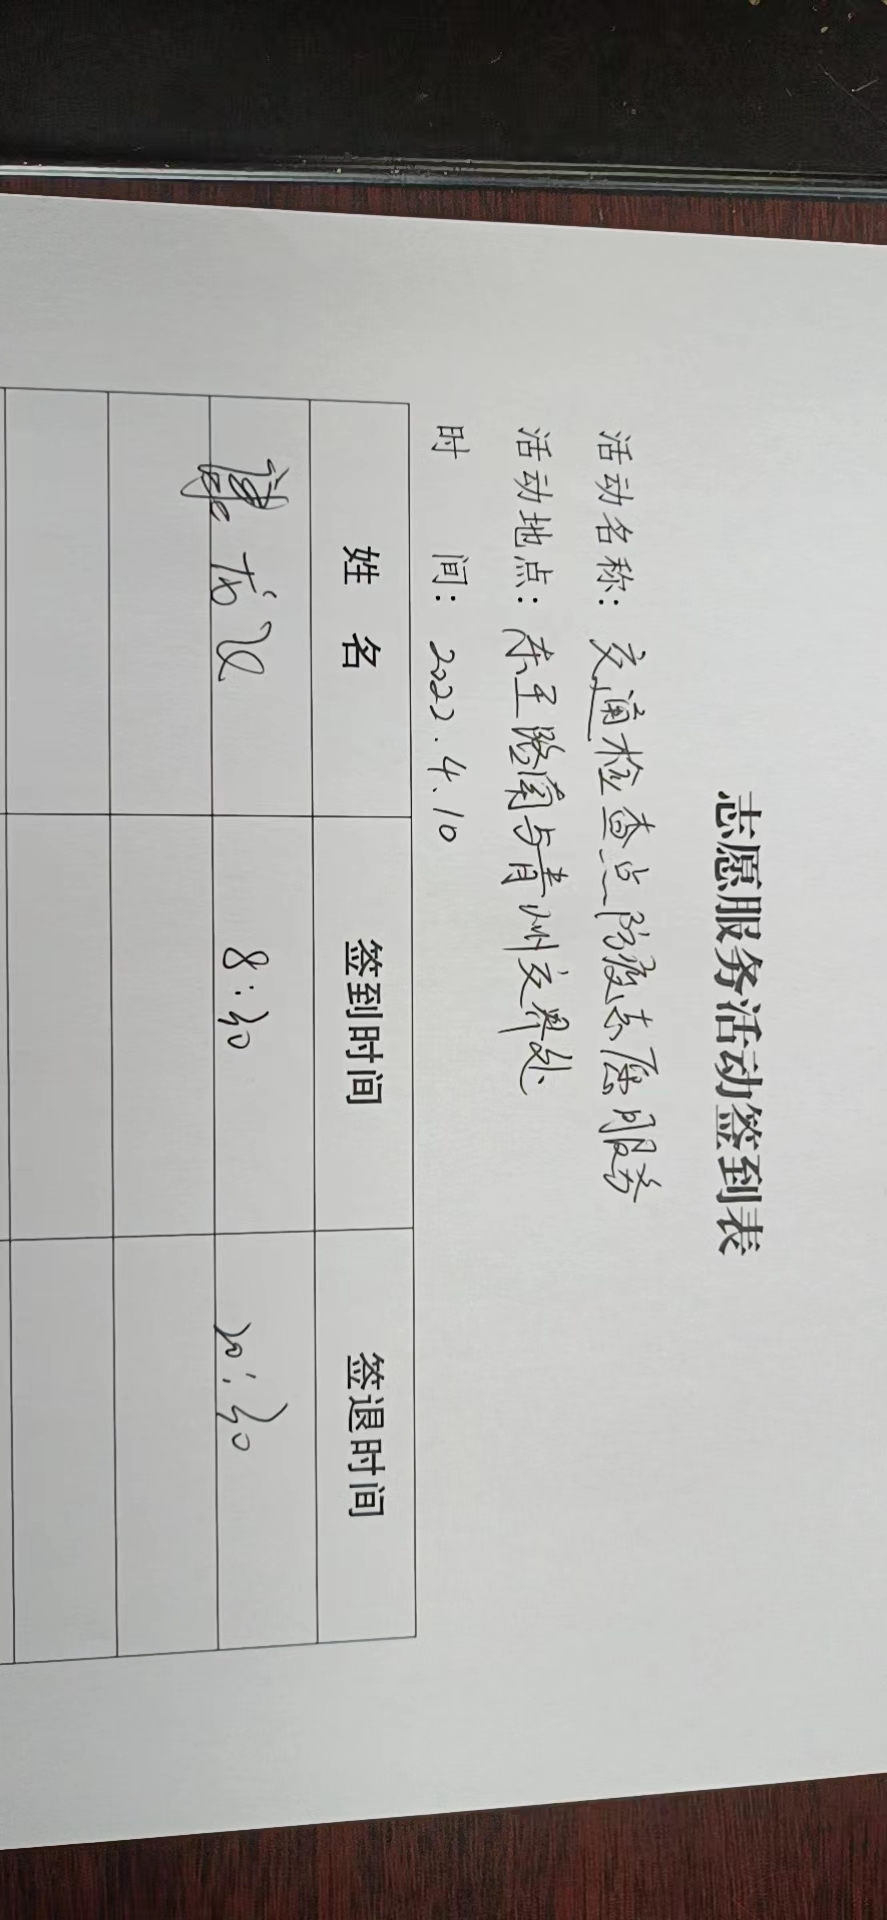 志愿服务活动签到表
活动名称：交通检查点防疫志愿服务
活动地点：东王路南与青州交界处
时 间：2022.4.10
姓 名 签到时间 签退时间
8:30 20:30